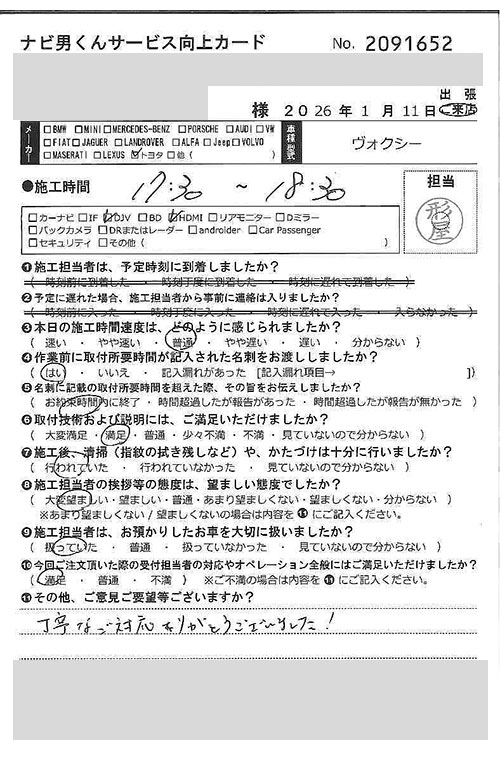 ナビ男くんサービス向上カード No. 2091652
様 2026年1月11日 出張・ご来店
メーカー □BMW □MINI □MERCEDES-BENZ □PORSCHE □AUDI □VW
□FIAT □JAGUER □LANDROVER □ALFA □Jeep □VOLVO
□MASERATI □LEXUS ☑トヨタ □他 ( )
車種型式 ヴォクシー
●施工時間 17:30 ~ 18:30
担当
形屋
□カーナビ □IF ☑DJV □BD ☑HDMI □リアモニター □Dミラー
□バックカメラ □DRまたはレーダー □androider □Car Passenger
□セキュリティ □その他 ( )
❶施工担当者は、予定時刻に到着しましたか?
( 時刻前に到着した ・ 時刻丁度に到着した ・ 時刻に遅れて到着した )
❷予定に遅れた場合、施工担当者から事前に連絡は入りましたか?
( 時刻前に入った ・ 時刻丁度に入った ・ 時刻に遅れて入った ・ 入らなかった )
❸本日の施工時間速度は、どのように感じられましたか?
( 速い ・ やや速い ・ 普通 ・ やや遅い ・ 遅い ・ 分からない )
❹作業前に取付所要時間が記入された名刺をお渡ししましたか?
( はい ・ いいえ ・ 記入漏れがあった [記入漏れ項目→ ])
❺名刺に記載の取付所要時間を超えた際、その旨をお伝えしましたか?
( お約束時間内に終了 ・ 時間超過したが報告があった ・ 時間超過したが報告が無かった )
❻取付技術および説明には、ご満足いただけましたか?
( 大変満足 ・ 満足 ・ 普通 ・ 少々不満 ・ 不満 ・ 見ていないので分からない )
❼施工後、清掃（指紋の拭き残しなど）や、かたづけは十分に行いましたか?
( 行われていた ・ 行われていなかった ・ 見ていないので分からない )
❽施工担当者の挨拶等の態度は、望ましい態度でしたか?
( 大変望ましい ・ 望ましい ・ 普通 ・ あまり望ましくない ・ 望ましくない ・ 分からない )
※あまり望ましくない / 望ましくないの場合は内容を⓫にご記入ください。
❾施工担当者は、お預かりしたお車を大切に扱いましたか?
( 扱っていた ・ 普通 ・ 扱っていなかった ・ 見ていないので分からない )
❿今回ご注文頂いた際の受付担当者の対応やオペレーション全般にはご満足いただけましたか?
( 満足 ・ 普通 ・ 不満 ) ※ご不満の場合は内容を⓫にご記入ください。
⓫その他、ご意見ご要望等ございますか?
丁寧なご対応ありがとうございました!